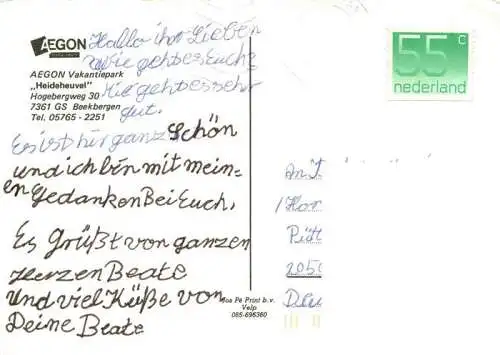 AEGON
Hallo ihr Lieben
wie geht es Euch?
AEGON Vakantiepark
„Heideheuvel"
Hogebergweg 30
7361 GS Beekbergen
Tel. 05765 - 2251
Mir geht es sehr
gut.
Es ist hir ganz Schön
und ich bin mit mein=
en Gedanken Bei Euch.
Es Grüßt von ganzen
Herzen Beate
Und viel Küße von
Deine Beate
55 c
nederland
An
Pe Print b.v.
Velp
085-696360